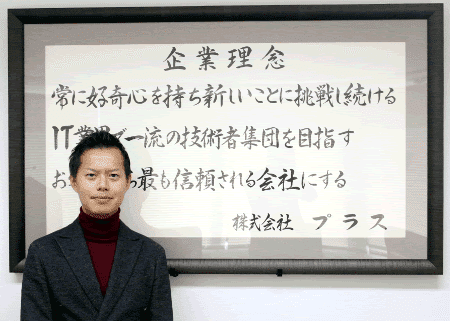 企業理念
常に好奇心を持ち新しいことに挑戦し続ける
IT業界で一流の技術者集団を目指す
お 最も信頼される会社にする
株式会社 プラス